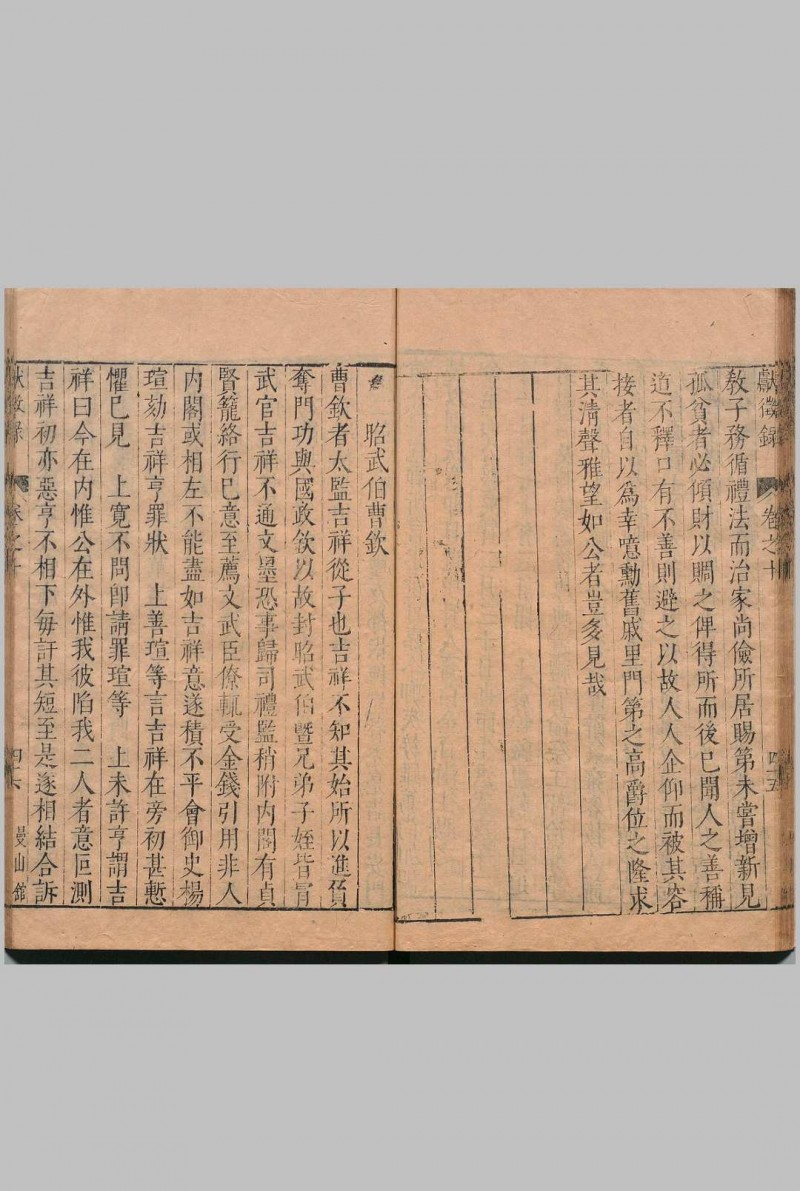 獻徵錄 卷之十 四十五
敎子務循禮法而治家尚儉所居賜第未嘗增新見
孤貧者必傾財以賙之俾得所而後已聞人之善稱
道不釋口有不善則避之以故人人企仰而被其容
接者自以爲幸噫勳舊戚里門第之高爵位之隆求
其淸聲雅望如公者豈多見哉
昭武伯曹欽
曹欽者太監吉祥從子也吉祥不知其始所以進貟
奪門功與國政欽以故封昭武伯暨兄弟子姪皆冒
武官吉祥不通文墨恐事歸司禮監稍附内閣有貞
賢籠絡行已意至薦文武臣僚輒受金錢引用非人
内閣或相左不能盡如吉祥意遂積不平會御史楊
瑄劾吉祥亨罪狀 上善瑄等言吉祥在旁初甚慙
懼已見 上寛不問卽請罪瑄等 上未許亨謂吉
祥曰今在内惟公在外惟我彼陷我二人者意叵測
吉祥初亦惡亨不相下每訐其短至是遂相結合訴
獻徵錄 卷之十 四十六 曼山館